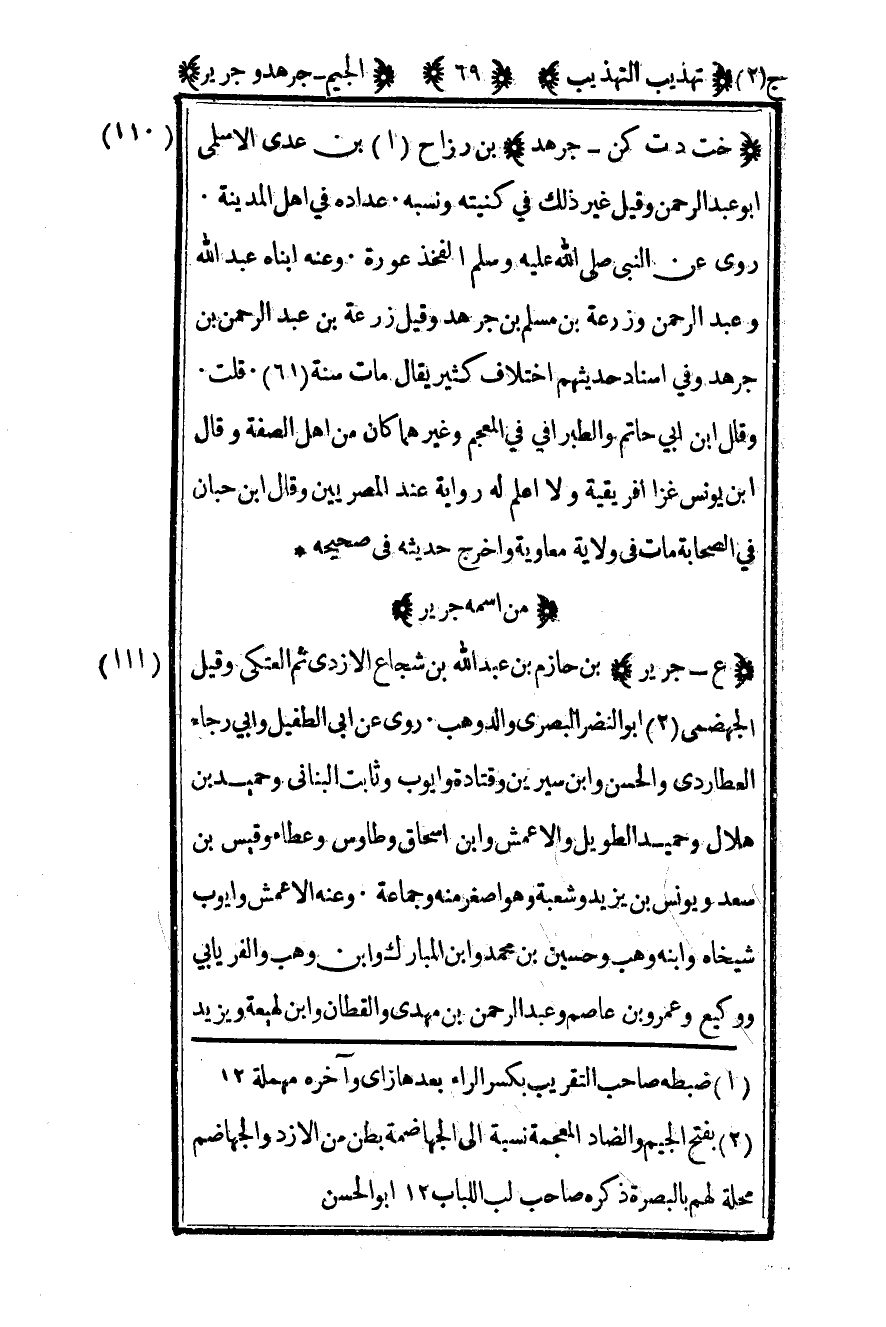 ج(٢) ﴿ تهذيب التهذيب ﴾ ﴿ ٦٩ ﴾ ﴿ الجيم - جرهد و جرير ﴾
(١١٠) ﴿ خت د ت كن - جرهد ﴾ بن رزاح (١) بن عدى الاسلمى
ابو عبد الرحمن وقيل غير ذلك في كنيته ونسبه · عداده في اهل المدينة ·
روى عن النبي صلى الله عليه وسلم الفخذ عورة · وعنه ابناه عبد الله
و عبد الرحمن وزرعة بن مسلم بن جرهد وقيل زرعة بن عبد الرحمن بن
جرهد وفي اسناد حديثهم اختلاف كثير يقال مات سنة (٦١) · قلت ·
وقال ابن ابي حاتم والطبرافي في المعجم وغيرهما كان من اهل الصفة وقال
ابن يونس غزا افريقية ولا اعلم له رواية عند المصريين وقال ابن حبان
في الصحابة مات فى ولاية معاوية واخرج حديثه فى صحيحه *
﴿ من اسمه جرير ﴾
(١١١) ﴿ ع - جرير ﴾ بن حازم بن عبد الله بن شجاع الازدى ثم العتكى وقيل
الجهضمى (٢) ابو النضر البصرى والد وهب · روى عن ابى الطفيل وابي رجاء
العطاردى والحسن وابن سيرين وقتادة وايوب وثابت البنانى وحميد بن
هلال وحميد الطويل والاعمش وابن اسحاق وطاوس وعطاء وقيس بن
سعد ويونس بن يزيد وشعبة وهو اصغر منه وجماعة · وعنه الاعمش وايوب
شيخاه وابنه وهب وحسين بن محمد وابن المبارك وابن وهب والفريابي
ووكيع وعمرو بن عاصم وعبد الرحمن بن مهدى والقطان وابن لهيعة ويزيد
(١) ضبطه صاحب التقريب بكسر الراء بعدها زاى وآخره مهملة ١٢
(٢) بفتح الجيم والضاد المعجمة نسبة الى الجهاضمة بطن من الازد والجهاضم
محلة لهم بالبصرة ذكره صاحب لب اللباب ١٢ ابو الحسن